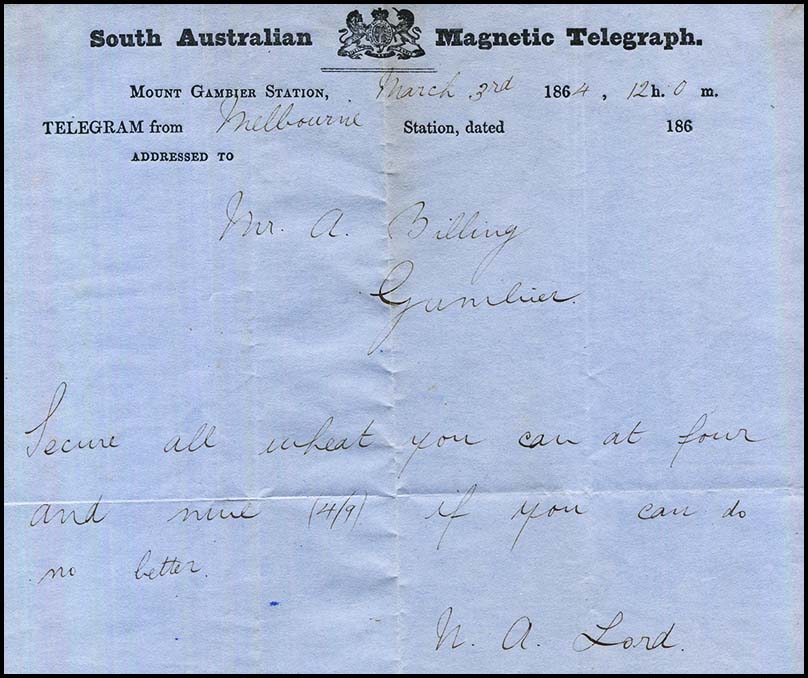 South Australian Magnetic Telegraph.
MOUNT GAMBIER STATION, March 3rd 1864, 12 h. 0 m.
TELEGRAM from Melbourne Station, dated 186
ADDRESSED TO
Mr. A. Billing
Gambier.
Secure all wheat you can at four
and nine (4/9) if you can do
no better.
N. A. Lord.